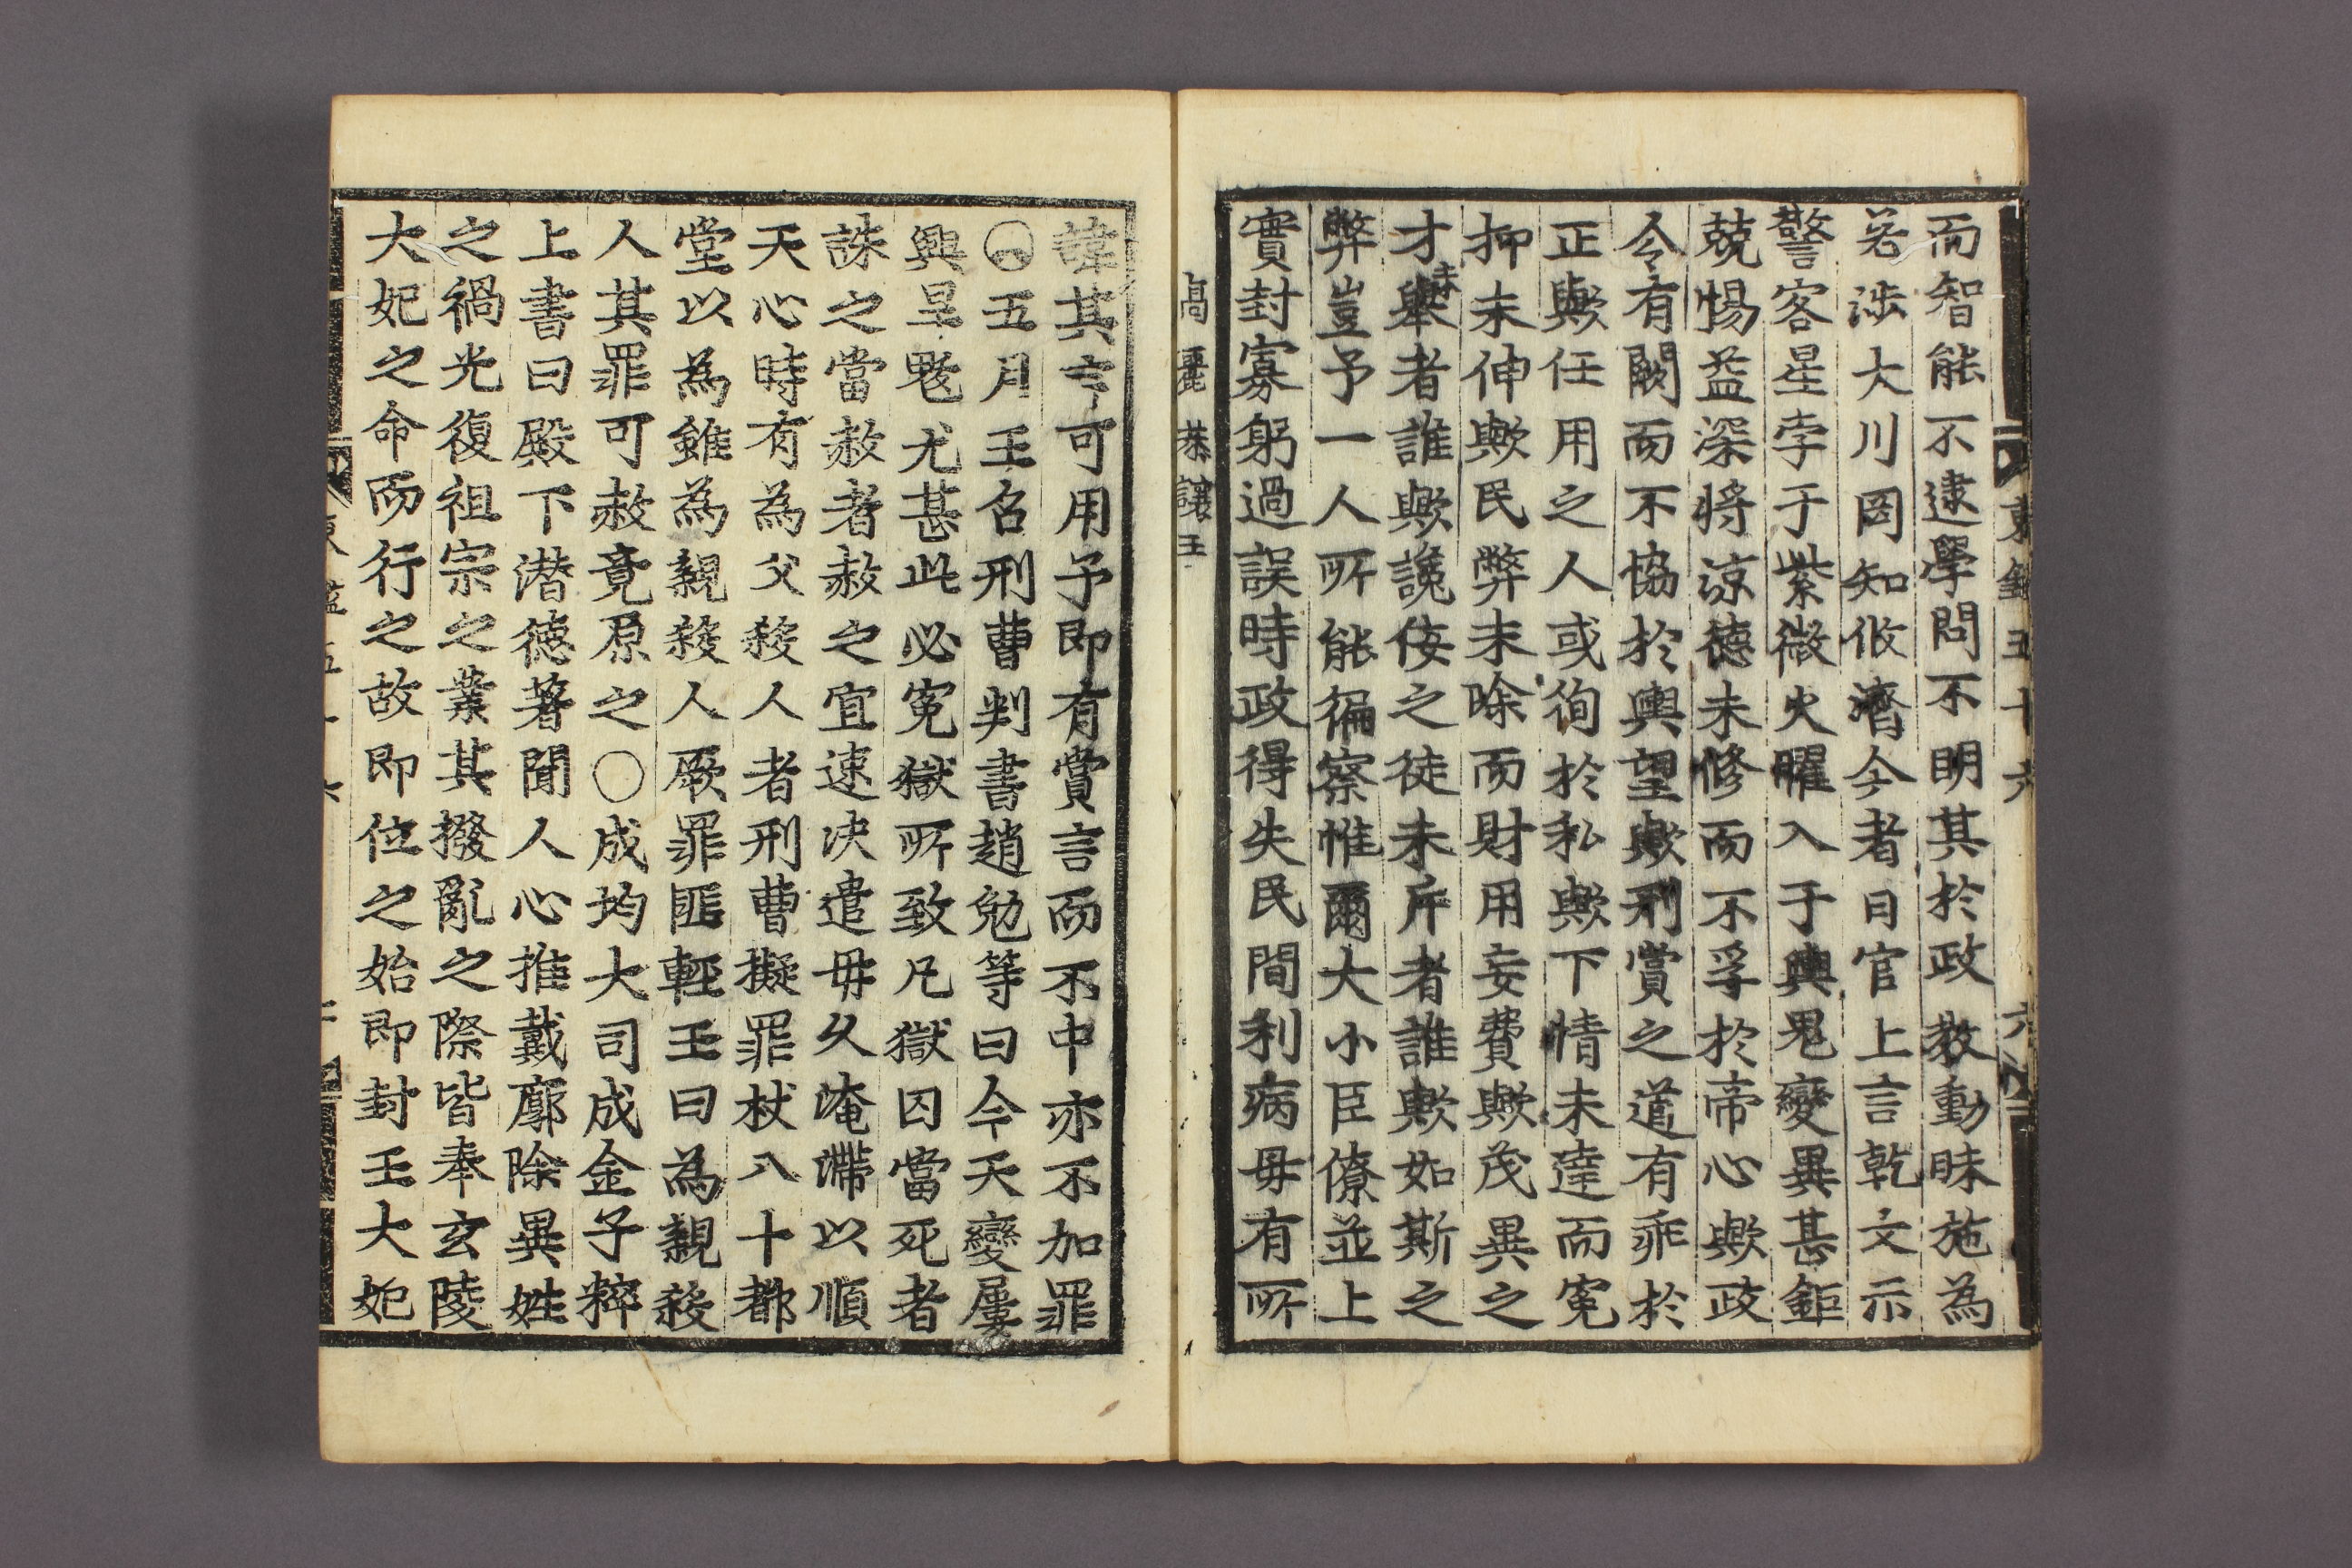 而智能不逮學問不明其於政教動昧施為
若涉大川罔知攸濟今者日官上言乾文示
警客星孛于紫微火曜入于輿鬼變異甚鉅
兢惕益深将涼德未修而不孚於帝心歟政
令有闕而不協於輿望歟刑賞之道有乖於
正歟任用之人或徇於私歟下情未達而冤
抑未伸歟民弊未除而財用妄費歟茂異之
才未舉者誰歟讒侫之徒未斥者誰歟如斯之
弊豈予一人所能徧察惟爾大小臣僚並上
實封寡躬過誤時政得失民間利病毋有所
高麗恭讓王
諱其言可用予即有賞言而不中亦不加罪
○五月王名刑曹判書趙勉等曰今天變屢
興旱魃尤甚此必冤獄所致凡獄囚當死者
誅之當赦者赦之宜速决遣毋久淹滯以順
天心時有為父殺人者刑曹擬罪杖八十都
堂以為雖為親殺人厥罪匪輕王曰為親殺
人其罪可赦竟原之○成均大司成金子粹
上書曰殿下潛德著聞人心推戴廓除異姓
之禍光復祖宗之業其撥亂之際皆奉玄陵
大妃之命而行之故即位之始即封王大妃